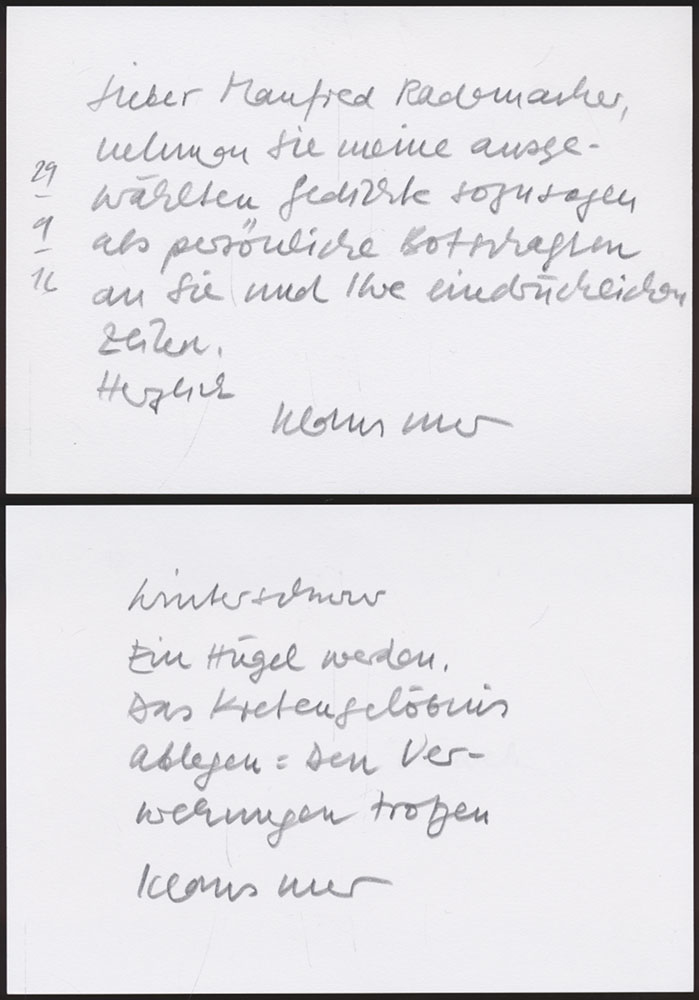 Lieber Manfred Rademacher,
nehmen Sie meine ausge-
wählten Gedichte sozusagen
als persönliche Botschaften
an Sie und Ihre eindrücklichen
Zeilen.
Herzlich
Klaus Merz
29
-
9
-
16
Winterschwur
Ein Hügel werden.
Das Kretengelöbnis
ablegen: Den Ver-
wehungen trotzen
Klaus Merz